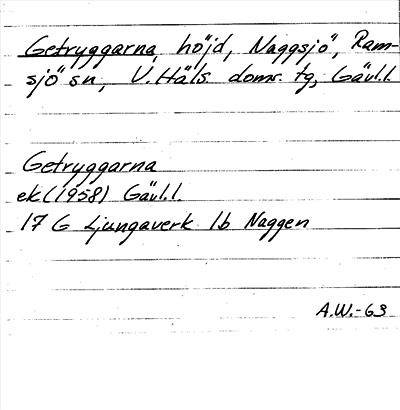 Getryggarna, höjd, Naggsjö, Ram-
sjö sn, V. Häls. doms. tg, Gävl.l.
Getryggarna
ek. (1958) Gävl.l.
17 G Ljungaverk 1b Naggen
A.W.-63